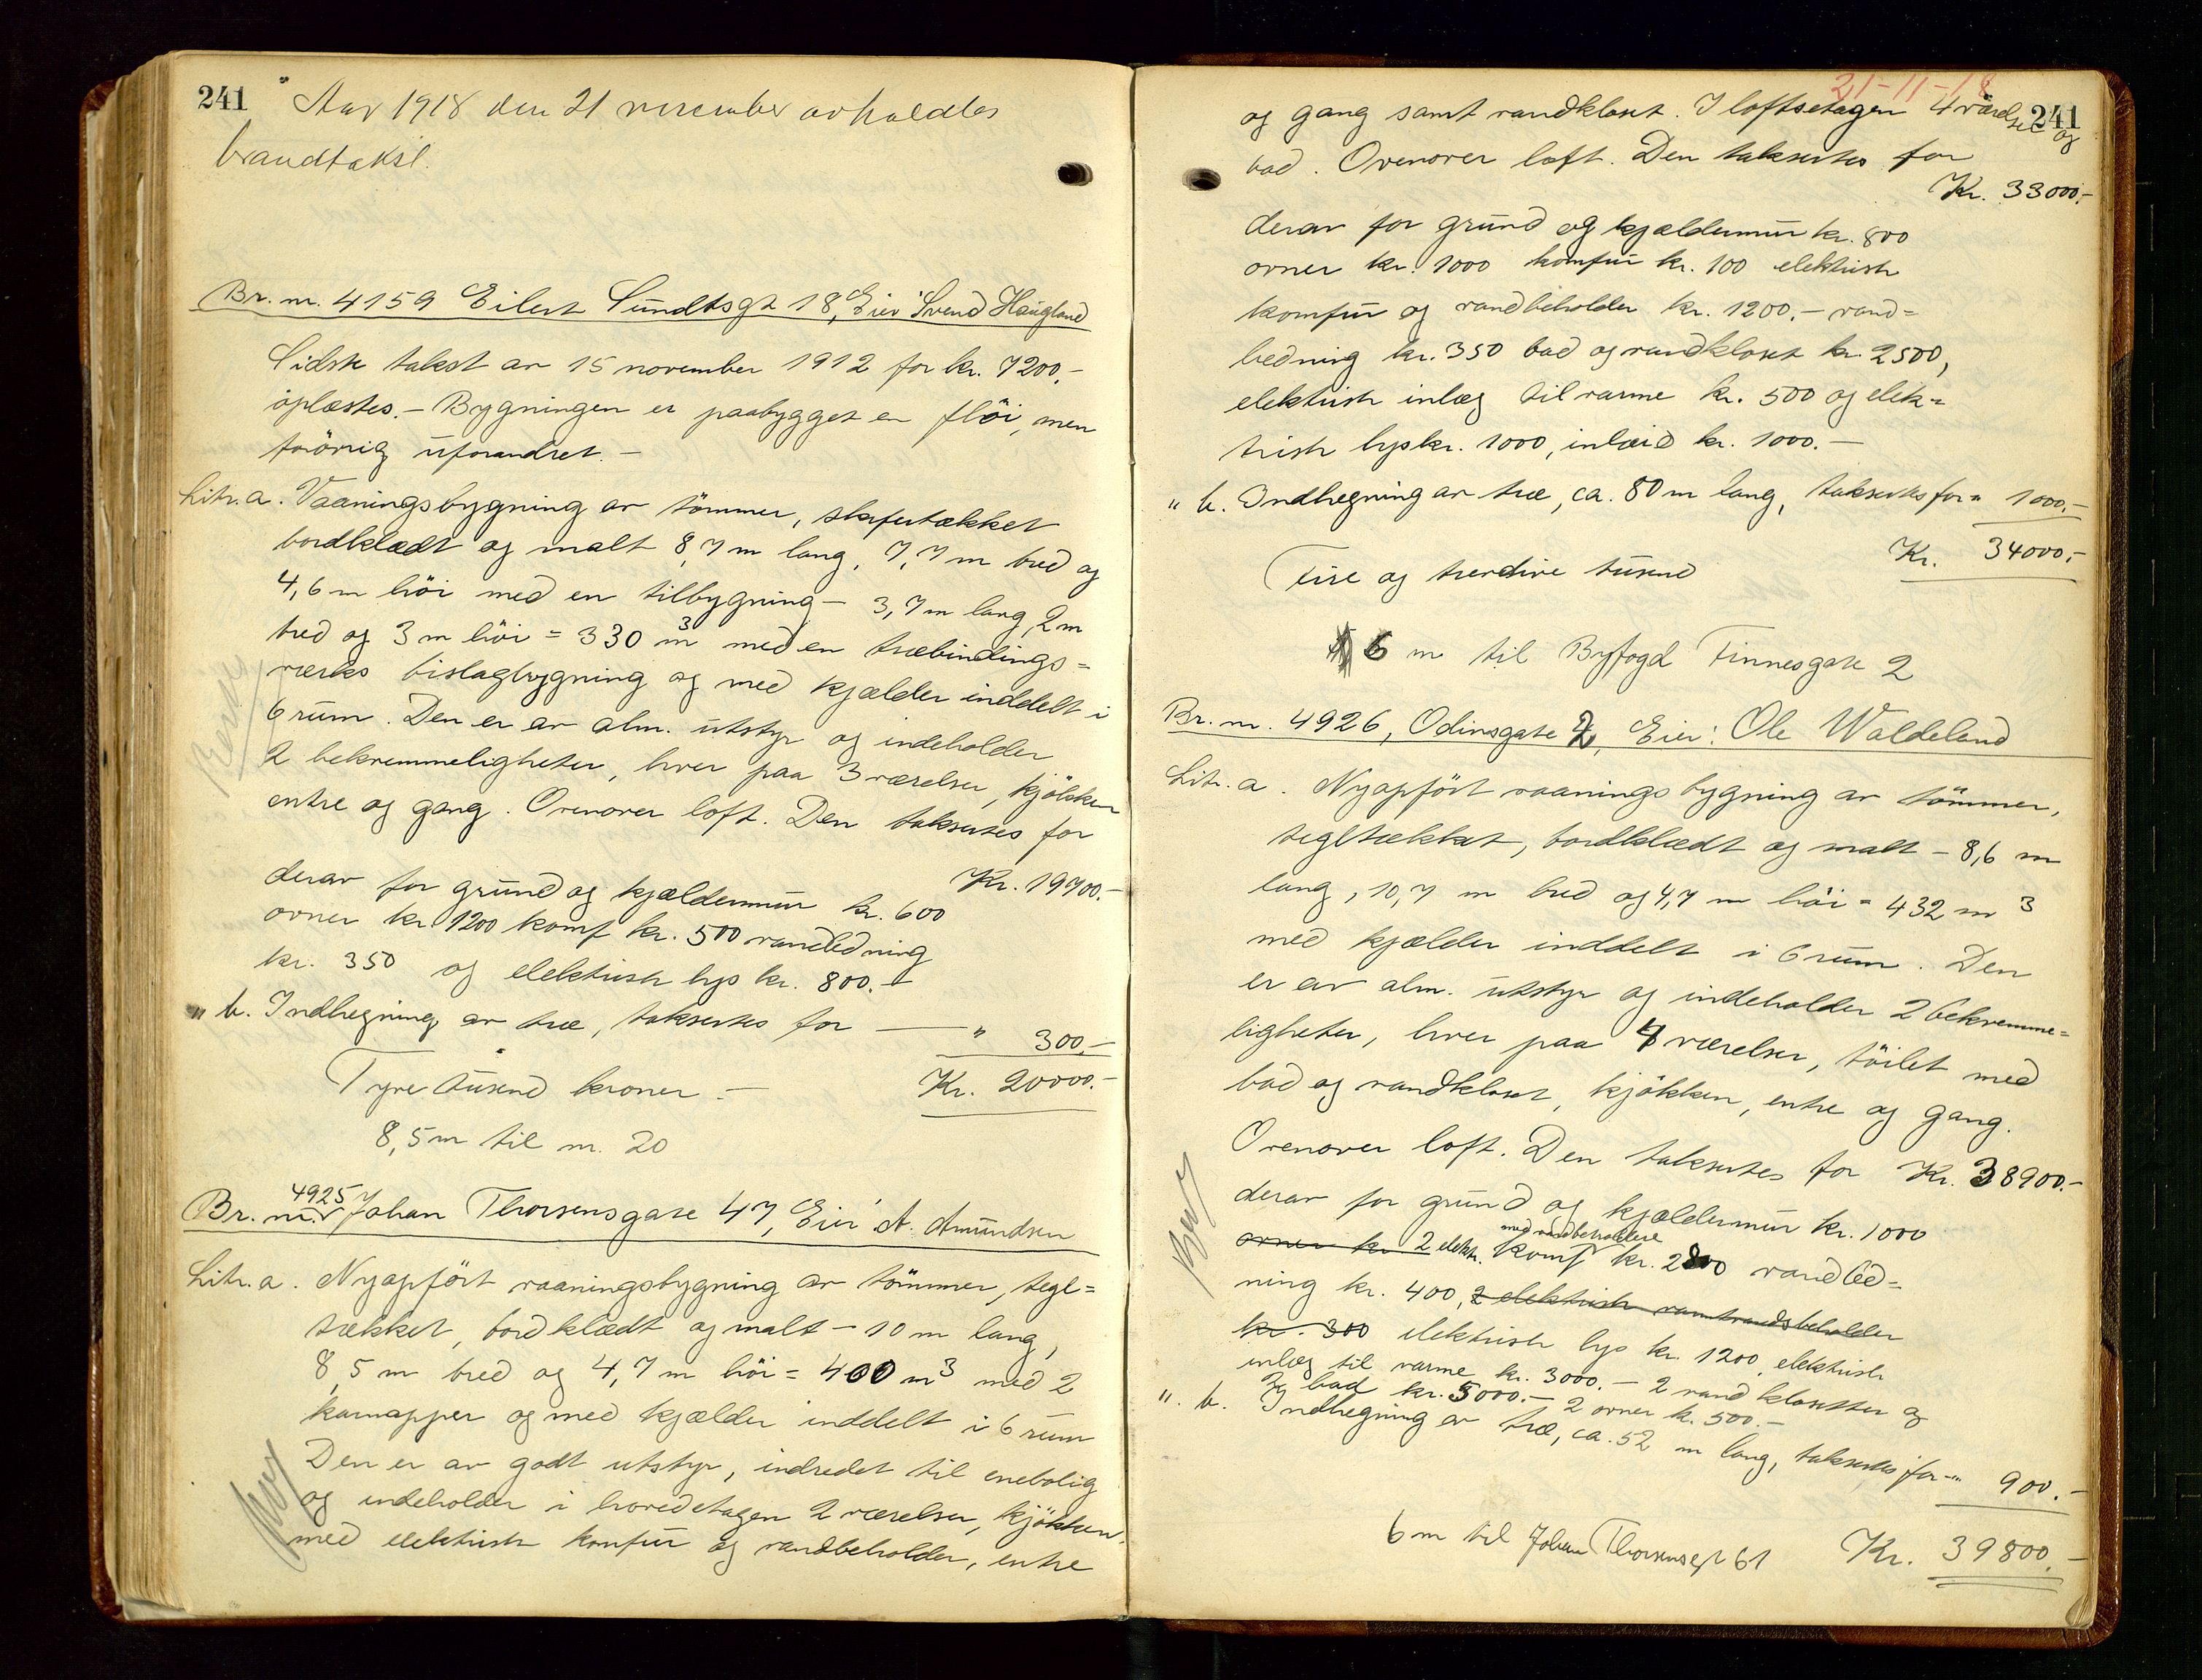 241
Aar 1918 den 21 november avholdtes
brandtakst.
Br. nr. 4159 Eilert Sundtsgt 18, Eier Svend Haugland
Sidste takst av 15 november 1912 for kr. 7200.-
oplæstes. - Bygningen er paabygget en fløi, men
forøvrig uforandret. -
Litr. a. Vaaningsbygning av tømmer, skifertækket
bordklædt og malt 8,7 m lang, 7,7 m bred og
4,6 m høi med en tilbygning - 3,7 m lang, 2 m
bred og 3 m høi = 330 m3 med en træbindings=
verks bislagbygning og med kjælder inddelt i
6 rum. Den er av alm. utstyr og indeholder
2 bekvemmeligheter, hver paa 3 værelser, kjøkken
entre og gang. Ovenover loft. Den taksertes for
Kr. 19700.-
derav for grund og kjældermur kr. 600
ovner kr 1200 komf kr. 500 vandledning
kr. 350 og elektrisk lys kr. 800.-
" b. Indhegning av træ, taksertes for — " 300.-
Tyve tusend kroner - Kr. 20000.-
8,5 m til nr. 20
Br. nr. 4925 Johan Thorsensgate 47, Eier A. Amundsen
Litr. a. Nyopført vaaningsbygning av tømmer, tegl=
tækket, bordklædt og malt - 10 m lang,
8,5 m bred og 4,7 m høi = 400 m3 med 2
karnapper og med kjælder inddelt i 6 rum
Den er av godt utstyr, indredet til enebolig
og indeholder i hovedetagen 2 værelser, kjøkken
med elektrisk komfur og vandbeholder, entre
21-11-18
241
og gang samt vandkloset. I loftsetagen 4 værelser og
bad. Ovenover loft. Den taksertes for
Kr. 33000.-
derav for grund og kjældermur kr. 800
ovner kr. 1000 komfur kr. 100 elektrisk
komfur og vandbeholder kr. 1200.- vand=
ledning kr. 350 bad og vandkloset kr. 2500,
elektrisk inlæg til varme kr. 500 og elek=
trisk lys kr. 1000, inlæid kr. 1000.-
" b. Indhegning av træ, ca. 80 m lang, taksertes for " 1000.-
Kr. 34000.-
Fire og tredive tusend
6 m til Byfogd Finnesgate 2
Br. nr. 4926, Odinsgate 2, Eier: Ole Waldeland
Litr. a. Nyopført vaaningsbygning av tømmer,
tegltækket, bordklædt og malt - 8,6 m
lang, 10,7 m bred og 4,7 m høi = 432 m3
med kjælder inddelt i 6 rum. Den
er av alm. utstyr og indeholder 2 bekvemme=
ligheter, hver paa 4 værelser, toilet med
bad og vandkloset, kjøkken, entre og gang.
Ovenover loft. Den taksertes for Kr. 38900.-
derav for grund og kjældermur kr. 1000
ovner kr 2 elektr. komf med vandbeholdere kr. 2800 vandled=
ning kr. 400, 2 elektrisk varmtvandsbeholder
kr. 300 elektrisk lys kr. 1200 elektrisk
inlæg til varme kr. 3000.- 2 vandklosetter og
2 bad kr. 5000.- 2 ovner k. 500.-
" b. Indhegning av træ, ca. 52 m lang, taksertes for - " 900.-
6 m til Johan Thorsensgt 61 Kr. 39800.-